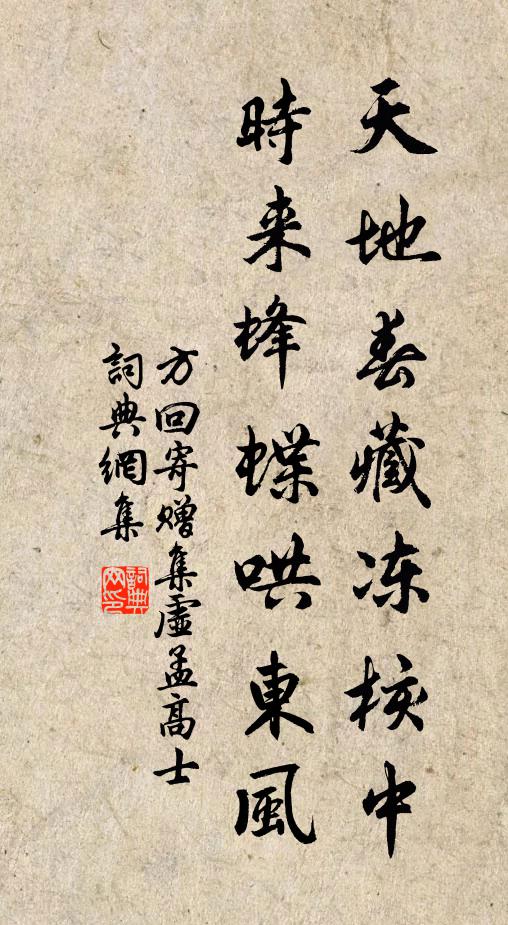 天地春藏冻核中
時来蜂蝶哄東風
方回寄赠集虛孟高士
詞典網集
詞典网印